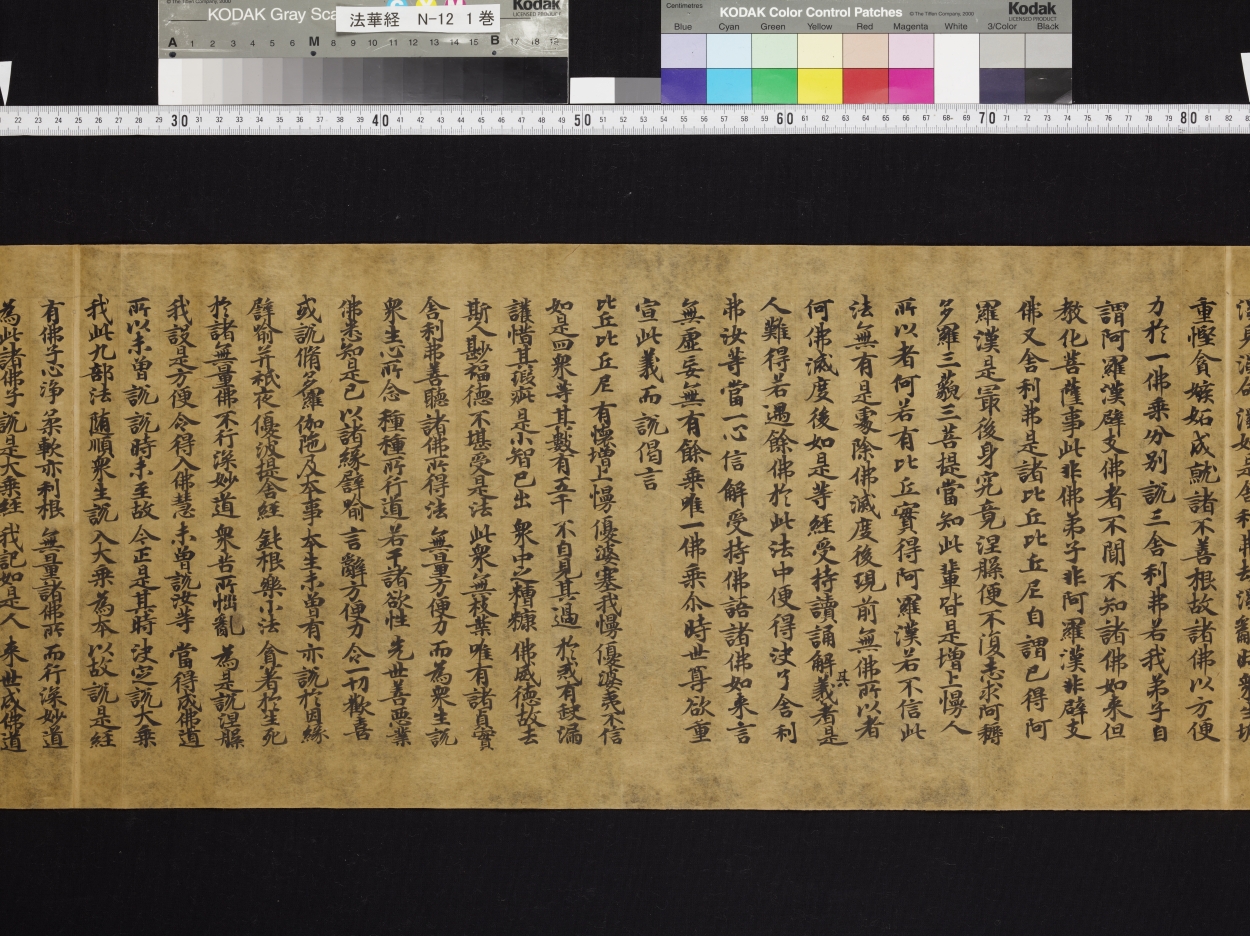 © The Tiffen Company, 2000
KODAK Gray Sca
Kodak
LICENSED PRODUCT
法華経 N-12 1巻
A 1 2 3 4 5 6 M 8 9 10 11 12 13 14 15 B 17 18 19
Centimetres
KODAK Color Control Patches © The Tiffen Company, 2000
Kodak
LICENSED PRODUCT
Blue Cyan Green Yellow Red Magenta White 3/Color Black
22 23 24 25 26 27 28 29 30 31 32 33 34 35 36 37 38 39 40 41 42 43 44 45 46 47 48 49 50 51 52 53 54 55 56 57 58 59 60 61 62 63 64 65 66 67 68 69 70 71 72 73 74 75 76 77 78 79 80 81 82
重慳貪嫉妬成就諸不善根故諸佛以方便
力於一佛乗分別説三舎利弗若我弟子自
謂阿羅漢辟支佛者不聞不知諸佛如来但
教化菩薩事此非佛弟子非阿羅漢非辟支
佛又舎利弗是諸比丘比丘尼自謂已得阿
羅漢是最後身究竟涅槃便不復志求阿耨
多羅三藐三菩提當知此輩皆是増上慢人
所以者何若有比丘實得阿羅漢若不信此
法無有是處除佛滅度後現前無佛所以者
何佛滅度後如是等経受持讀誦解其義者是
人難得若遇餘佛於此法中便得决了舎利
弗汝等當一心信解受持佛語諸佛如来言
無虚妄無有餘乗唯一佛乗尒時世尊欲重
宣此義而説偈言
比丘比丘尼 有懐増上慢 優婆塞我慢 優婆夷不信
如是四衆等 其數有五千 不自見其過 於戒有缺漏
護惜其瑕疵 是小智已出 衆中之糟糠 佛威德故去
斯人尠福德 不堪受是法 此衆無枝葉 唯有諸貞實
舎利弗善聴 諸佛所得法 無量方便力 而為衆生説
衆生心所念 種種所行道 若干諸欲性 先世善悪業
佛悉知是已 以諸縁譬喻 言辭方便力 令一切歡喜
或説脩多羅 伽陁及本事 本生未曽有 亦説於因縁
譬喻并祇夜 優波提舎経 鈍根樂小法 貪著於生死
於諸無量佛 不行深妙道 衆苦所惱亂 為是説涅槃
我設是方便 令得入佛慧 未曽説汝等 當得成佛道
所以未曽説 説時未至故 今正是其時 决定説大乗
我此九部法 随順衆生説 入大乗為本 以故説是経
有佛子心浄 柔軟亦利根 無量諸佛所 而行深妙道
為此諸佛子 説是大乗経 我記如是人 来世成佛道